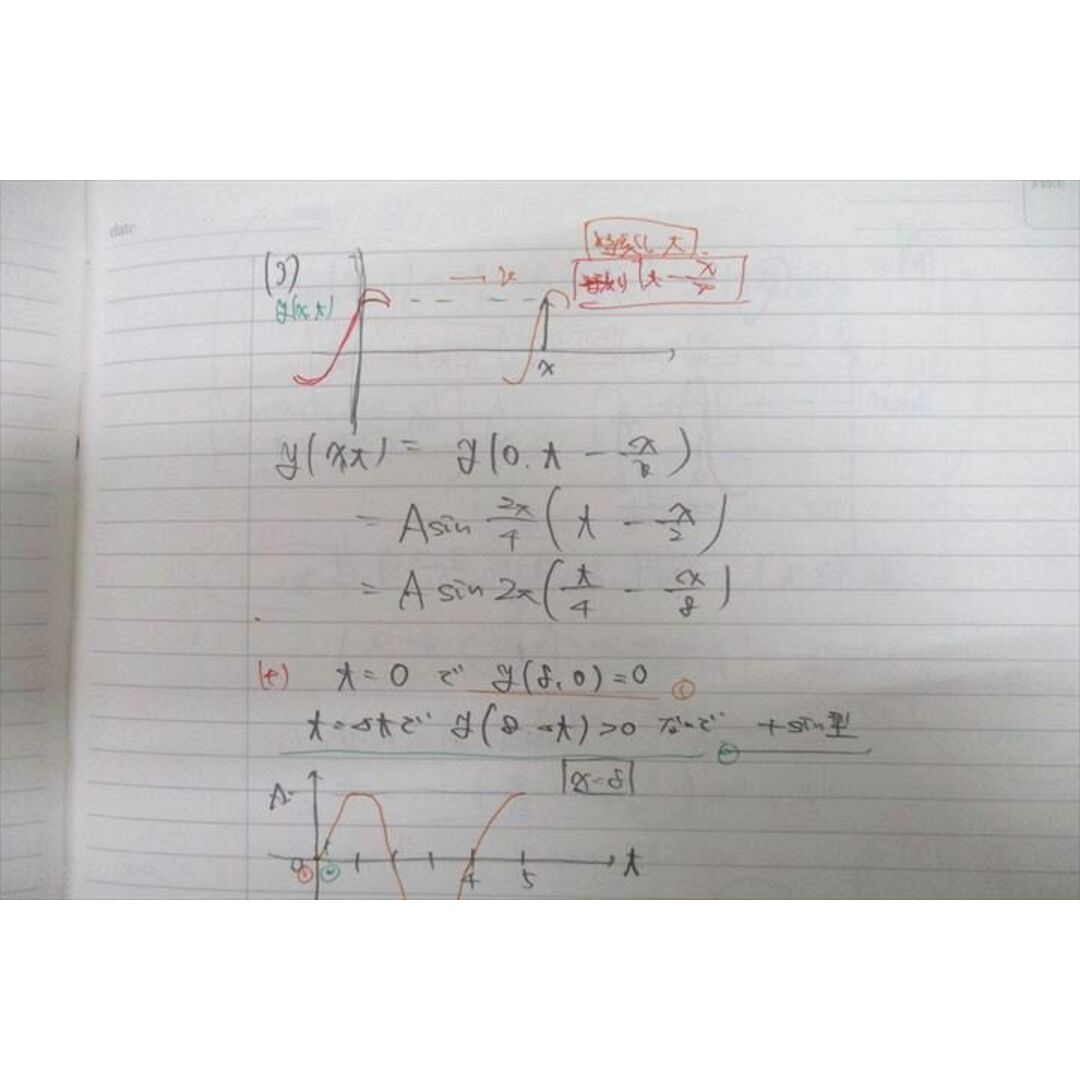 date
時刻 t
(3)
→ v
時刻 t - x/v
y(x,t)
x
y(x,t) = y(0, t - x/v)
= A sin 2π/4 (t - x/2)
= A sin 2π (t/4 - x/8)
t = 0 で y(8, 0) = 0 ①
t = Δt で y(8, Δt) > 0 なので + sin型
②
x = 8
A
0 ① ② 4 5 t